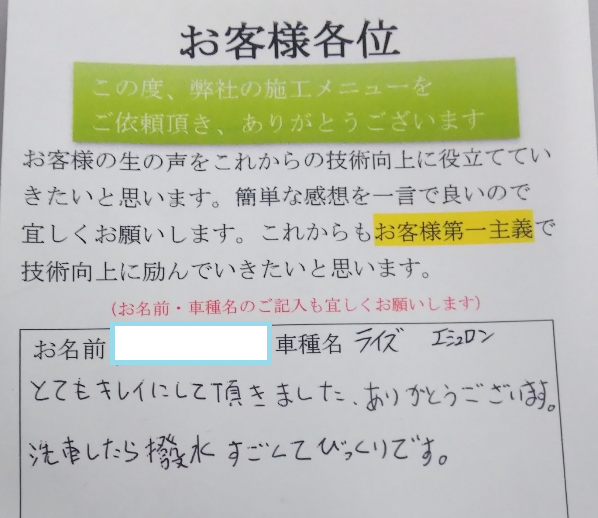 お客様各位
この度、弊社の施工メニューを
ご依頼頂き、ありがとうございます
お客様の生の声をこれからの技術向上に役立ててい
きたいと思います。簡単な感想を一言で良いので
宜しくお願いします。これからもお客様第一主義で
技術向上に励んでいきたいと思います。
(お名前・車種名のご記入も宜しくお願いします)
お名前 車種名 ライズ エシュロン
とてもキレイにして頂きました、ありがとうございます。
洗車したら撥水すごくてびっくりです。